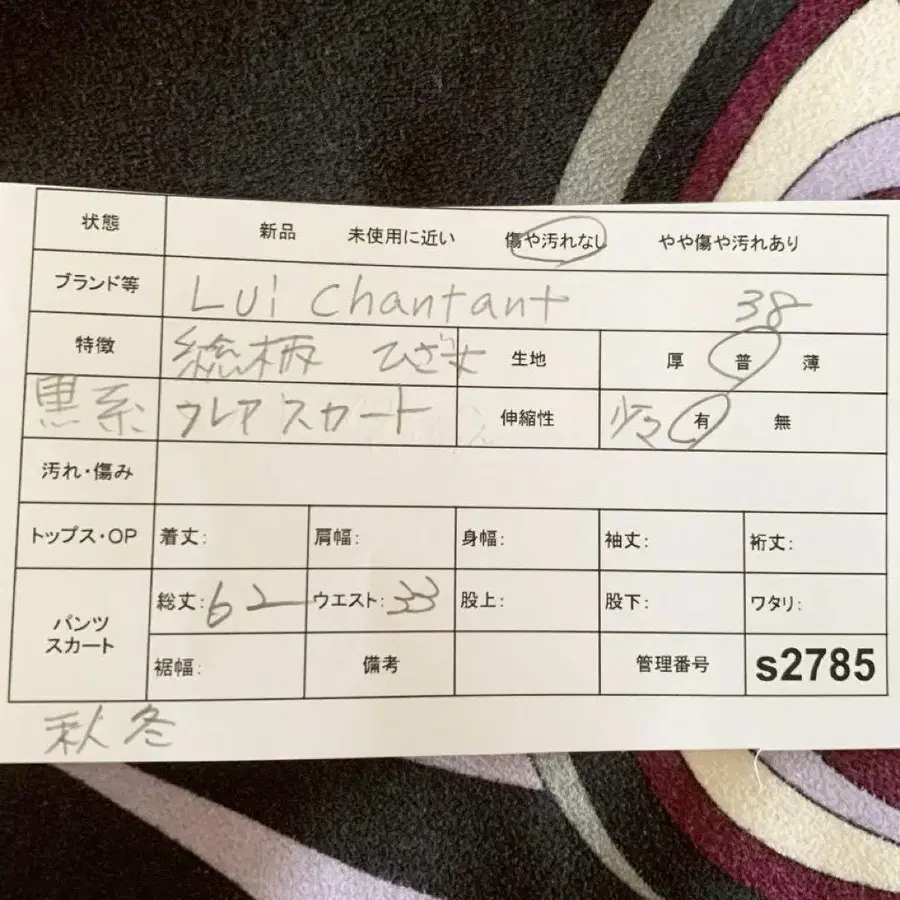 状態 新品 未使用に近い 傷や汚れなし やや傷や汚れあり
ブランド等 Lui Chantant 38
特徴 総柄 ひざ丈 生地 厚 普 薄
黒系 フレアスカート 伸縮性 少々 有 無
汚れ・傷み
トップス・OP 着丈: 肩幅: 身幅: 袖丈: 裄丈:
パンツ スカート 総丈:62 ウエスト:33 股上: 股下: ワタリ:
裾幅: 備考 管理番号 s2785
秋冬